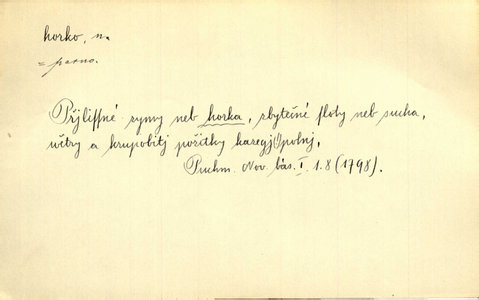 horko, n.
= parno.
Přjliffné zymy neb horka, zbytečné floty neb sucha,
wětry a krupobitj požitky kazegj polnj.
Puchm. Nov. bás. I. 1. 8 (1798).